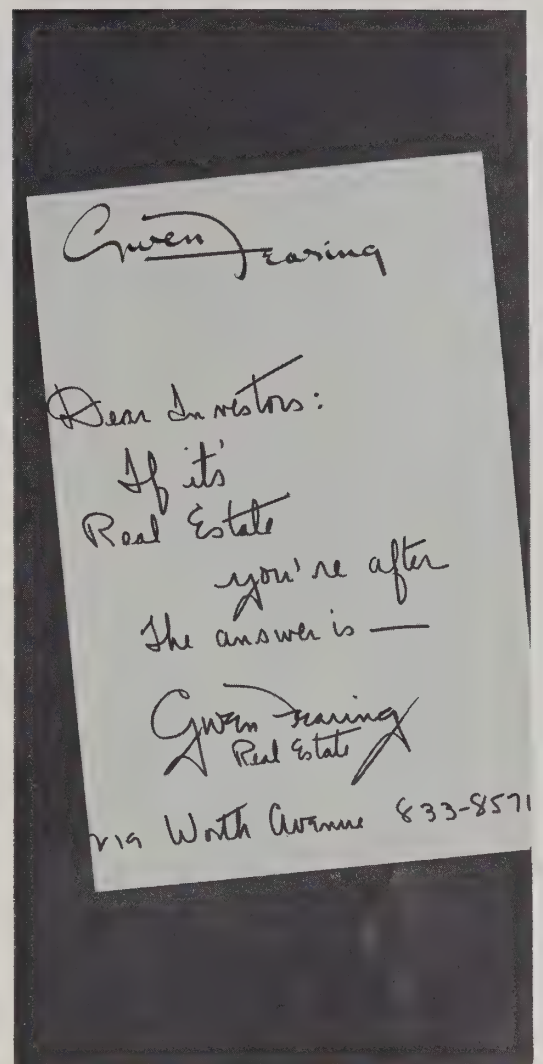 Gwen Fearing
Dear Investors:
If it's
Real Estate
you're after
The answer is —
Gwen Fearing
Real Estate
Via Worth Avenue 833-8571